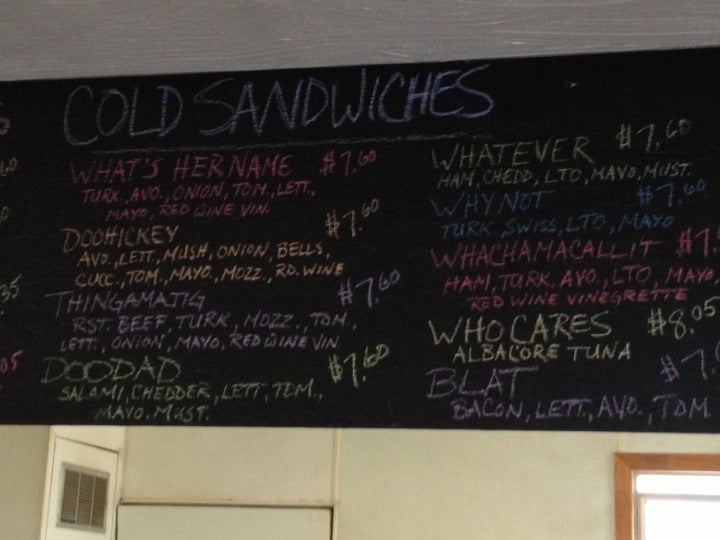 COLD SANDWICHES
WHAT'S HER NAME $7.60
TURK., AVO., ONION, TOM., LETT.,
MAYO, RED WINE VIN.
DOOHICKEY $7.60
AVO., LETT., MUSH, ONION, BELLS,
CUCC., TOM., MAYO., MOZZ., RD. WINE
THINGAMAJIG $7.60
RST. BEEF, TURK., MOZZ., TOM.,
LETT., ONION, MAYO, RED WINE VIN.
DOODAD $7.60
SALAMI, CHEDDER, LETT, TOM.,
MAYO, MUST.
WHATEVER $7.60
HAM, CHEDD, LTO, MAYO, MUST.
WHY NOT $7.60
TURK. SWISS, LTO, MAYO
WHACHAMACALLIT $7.
HAM, TURK. AVO., LTO, MAYO
RED WINE VINEGRETTE
WHO CARES $8.05
ALBACORE TUNA
BLAT $7.
BACON, LETT., AVO., TOM